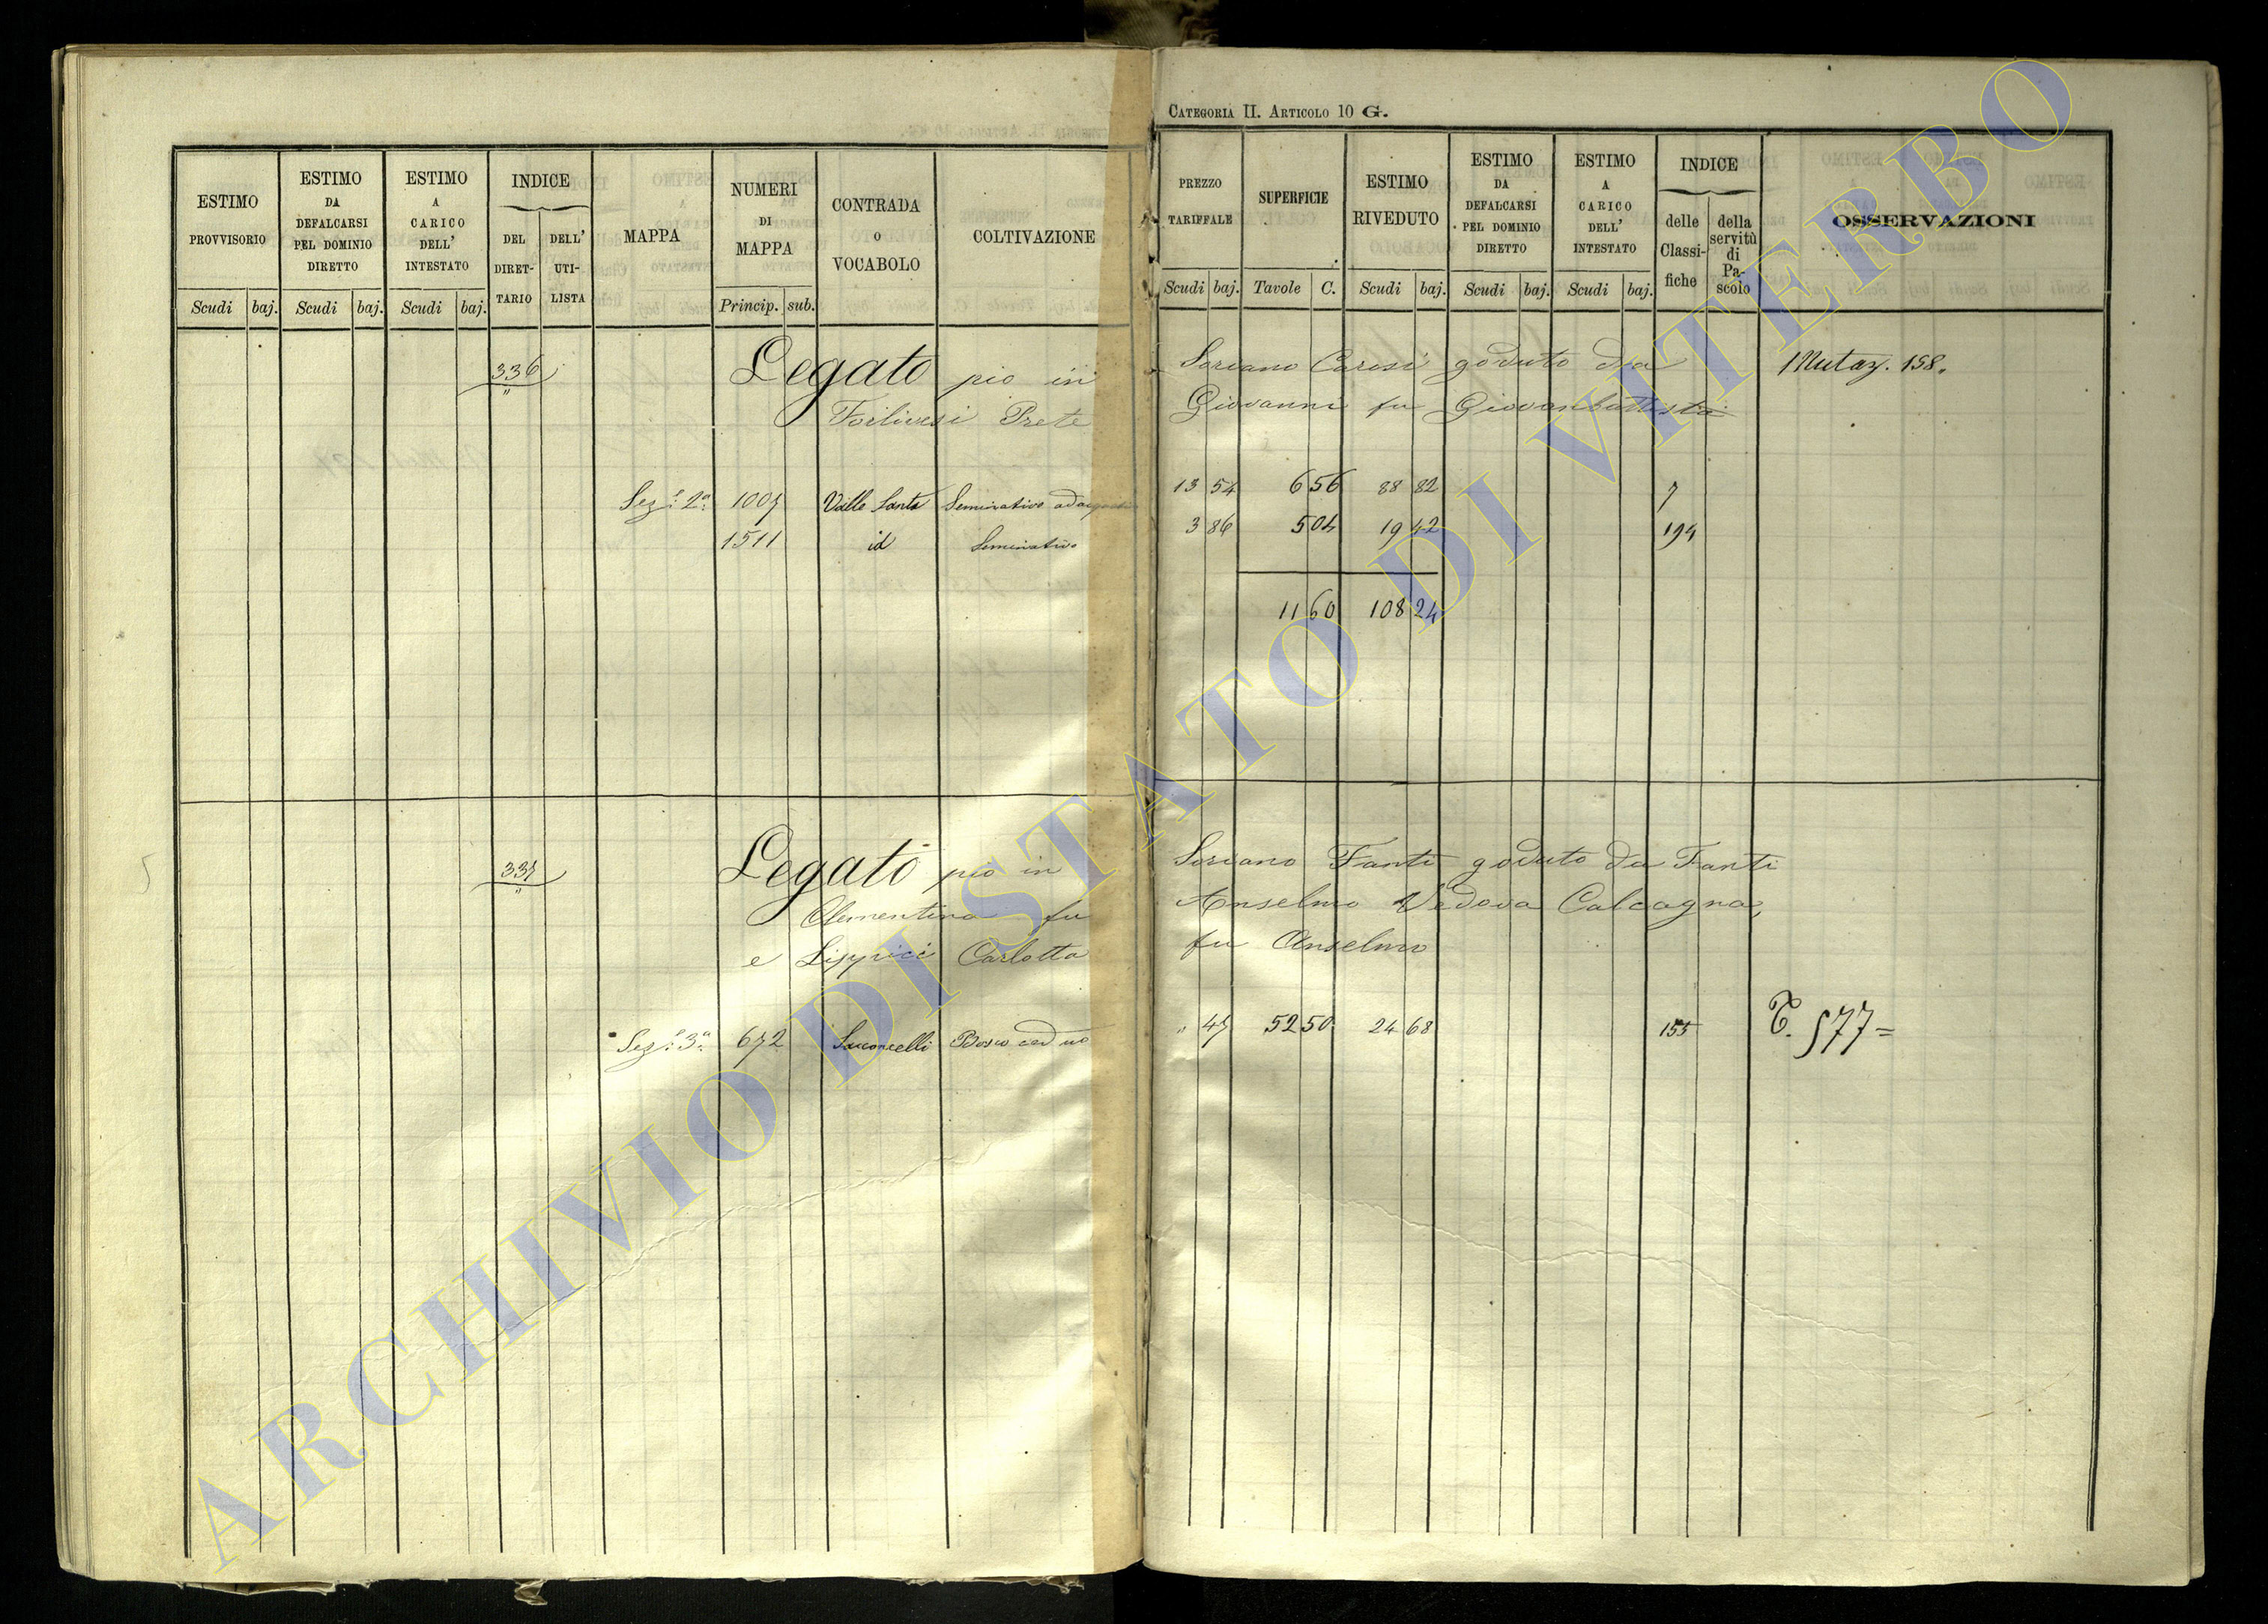 CATEGORIA II. ARTICOLO 10 G.
ESTIMO PROVVISORIO
ESTIMO DA DEFALCARSI PEL DOMINIO DIRETTO
ESTIMO A CARICO DELL' INTESTATO
INDICE
DEL DIRET- TARIO
DELL' UTI- LISTA
MAPPA
NUMERI DI MAPPA
CONTRADA O VOCABOLO
COLTIVAZIONE
PREZZO TARIFFALE
SUPERFICIE
ESTIMO RIVEDUTO
ESTIMO DA DEFALCARSI PEL DOMINIO DIRETTO
ESTIMO A CARICO DELL' INTESTATO
INDICE
delle Classi- fiche
della servitù di Pa- scolo
OSSERVAZIONI
Scudi baj. Scudi baj. Scudi baj. Princip. sub. Scudi baj. Tavole C. Scudi baj. Scudi baj. Scudi baj.
336 Legato pio in Soriano goduto da Mutaz. 158.
Prete Giovanni fu Giovanbattista
Sez. 2a 1007 Valle Santa Seminativo 13 54 6 56 88 82 7
1511 id Seminativo 3 86 5 04 19 42 194
11 60 108 24
337 Legato pio in Soriano Fanti goduto da Fanti
Clementina fu Anselmo Vedova Calcagna,
e Carlotta fu Anselmo
Sez. 3a 672 Bosco ceduo " 47 52 50 24 68 155
ARCHIVIO DI STATO DI VITERBO